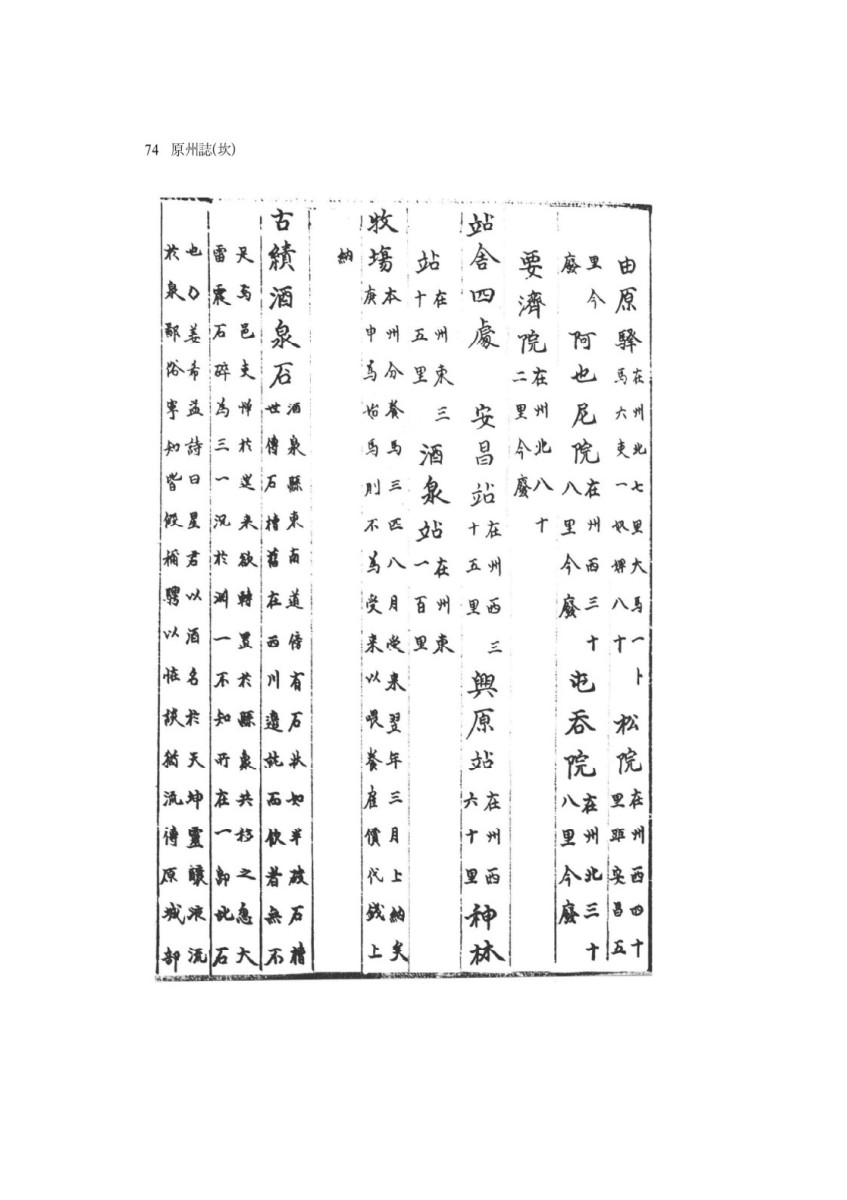 74 原州誌(坎)
由原驛 在州北七里大馬一卜馬六吏一奴婢八十 松院 在州西四十里距安昌五
里今廢 阿也尼院 在州西三十八里今廢 屯呑院 在州北三十八里今廢
要濟院 在州北八十二里今廢
站舍四處 安昌站 在州西三十五里 興原站 在州西六十里 神林
站 在州東三十五里 酒泉站 在州東一百里
牧場 本州分養馬三匹八月受來翌年三月上納矣庚申為始馬則不為受來以喂養雇價代錢上
納
古績酒泉石 酒泉縣東南道傍有石狀如半破石槽世傳石槽舊在西川邊就而飲者無不
足焉邑吏憚於迋來欲轉置於縣衆共移之忽大雷震石碎為三一沉於渊一不知所在一卽此石
也○姜希孟詩曰星君以酒名於天坤靈釀液流於泉鄙俗寧知皆假稱騁以恠談猶流傳原城部